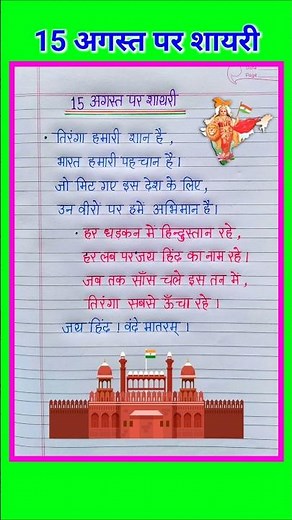 15 अगस्त पर शायरी
15 अगस्त पर शायरी
• तिरंगा हमारी शान है,
भारत हमारी पहचान है।
जो मिट गए इस देश के लिए,
उन वीरों पर हमें अभिमान है।
• हर धड़कन में हिन्दुस्तान रहे,
हर लब पर जय हिंद का नाम रहे।
जब तक साँस चले इस तन में,
तिरंगा सबसे ऊँचा रहे।
जय हिंद। वंदे मातरम्।